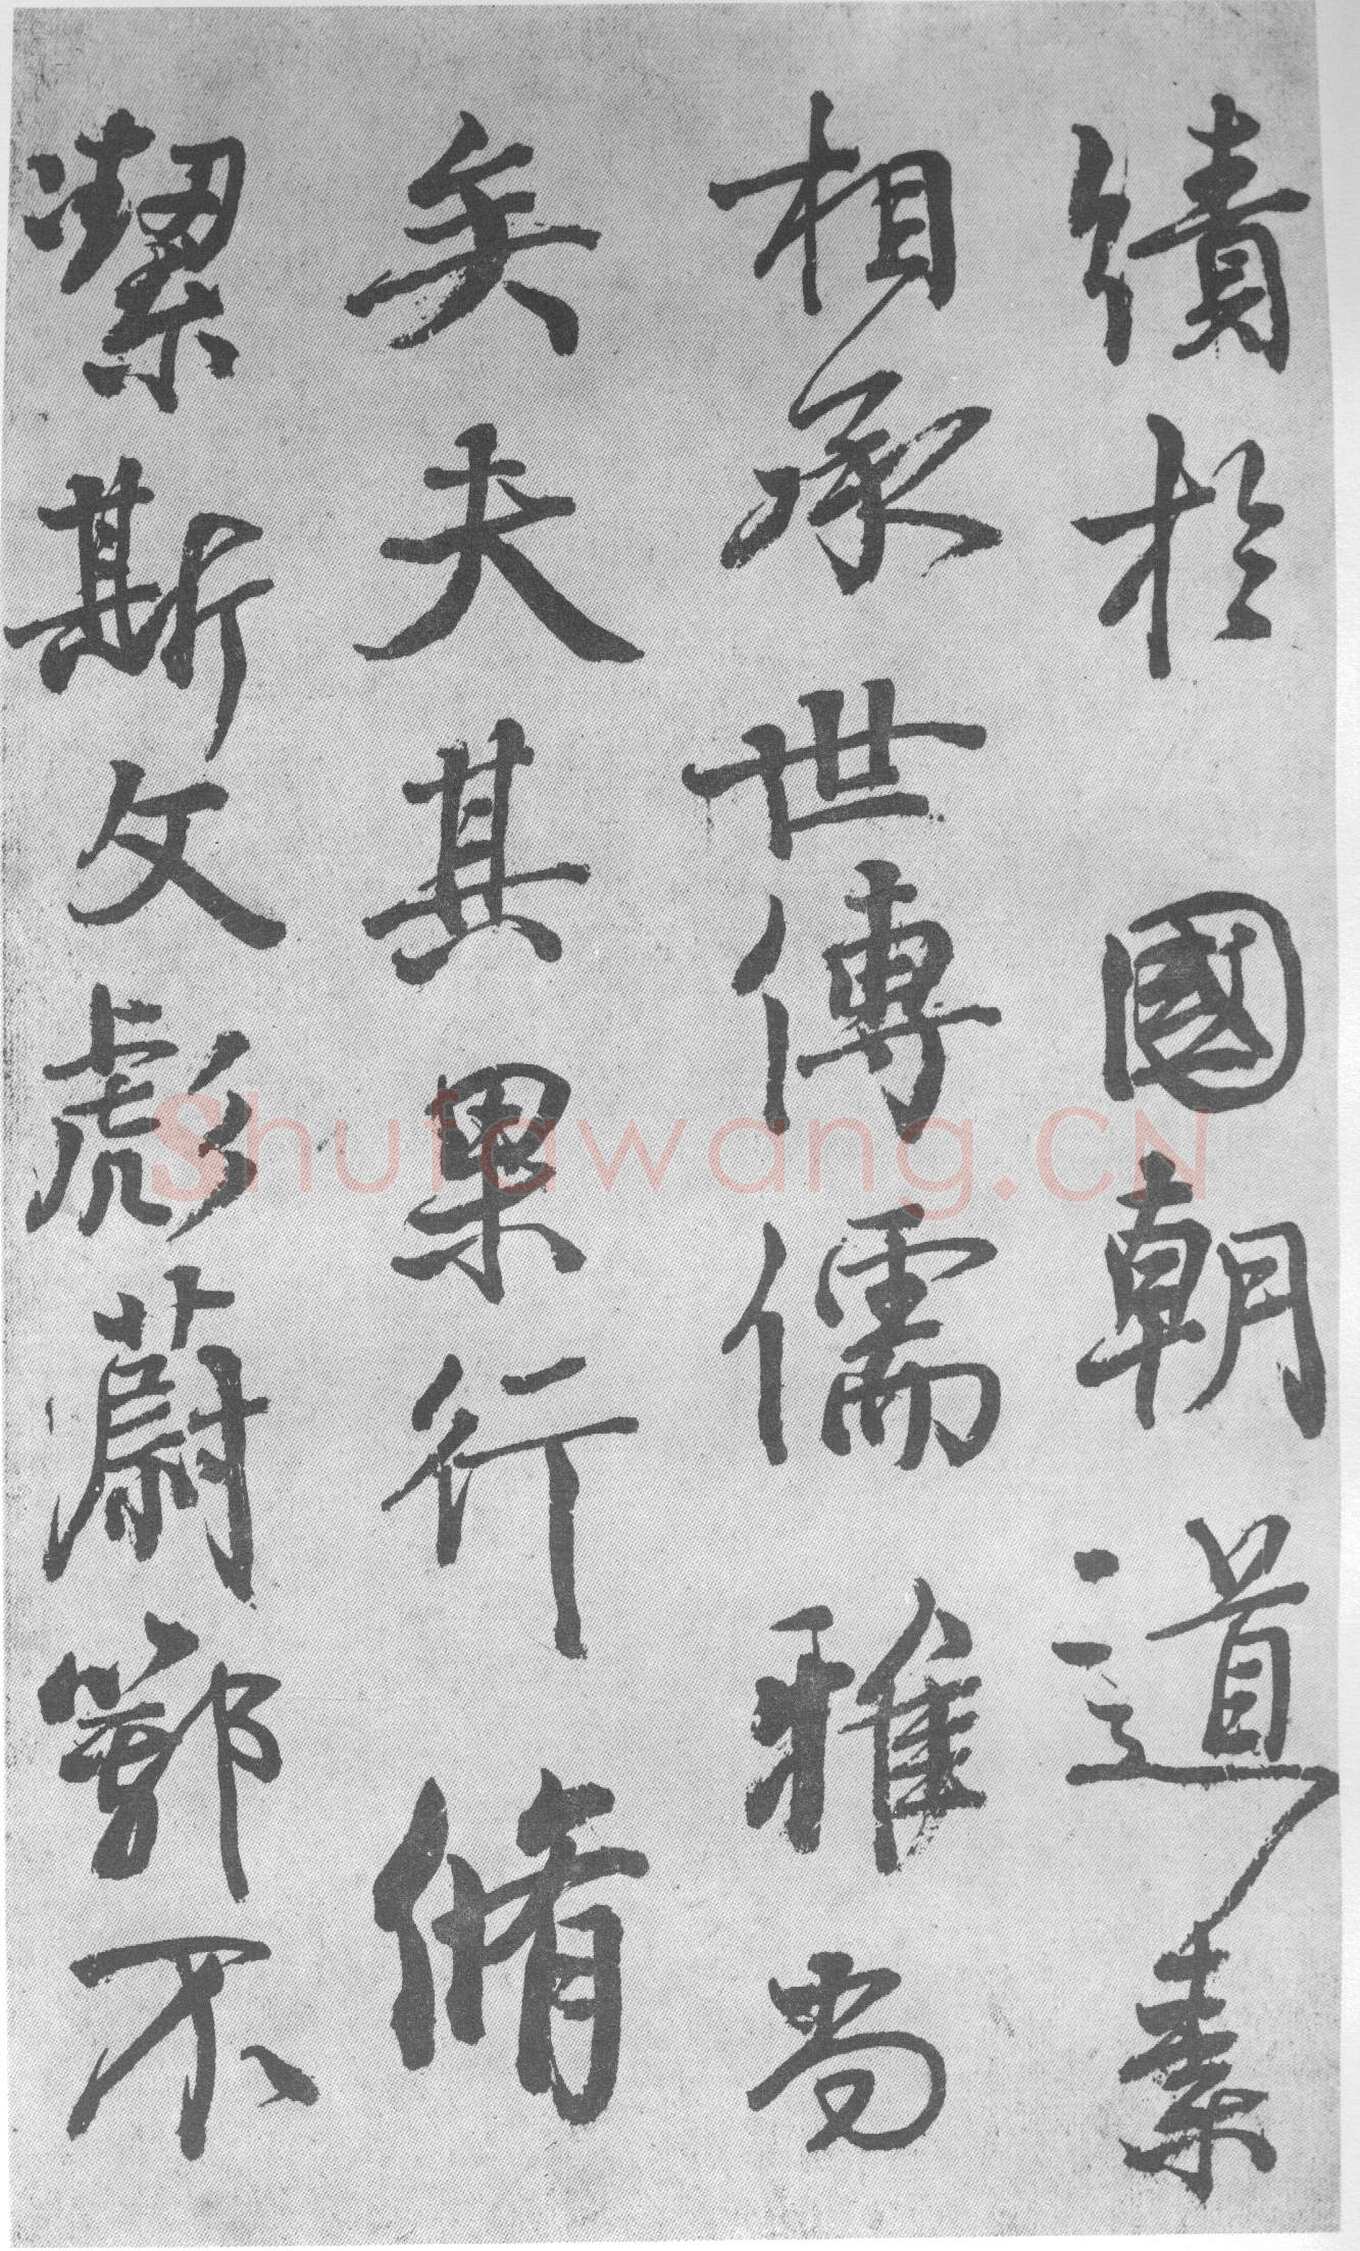 績於國朝道素
相承世傳儒雅尚
矣夫其果行脩
潔斯文彪蔚鄂不
Shufawang.CN